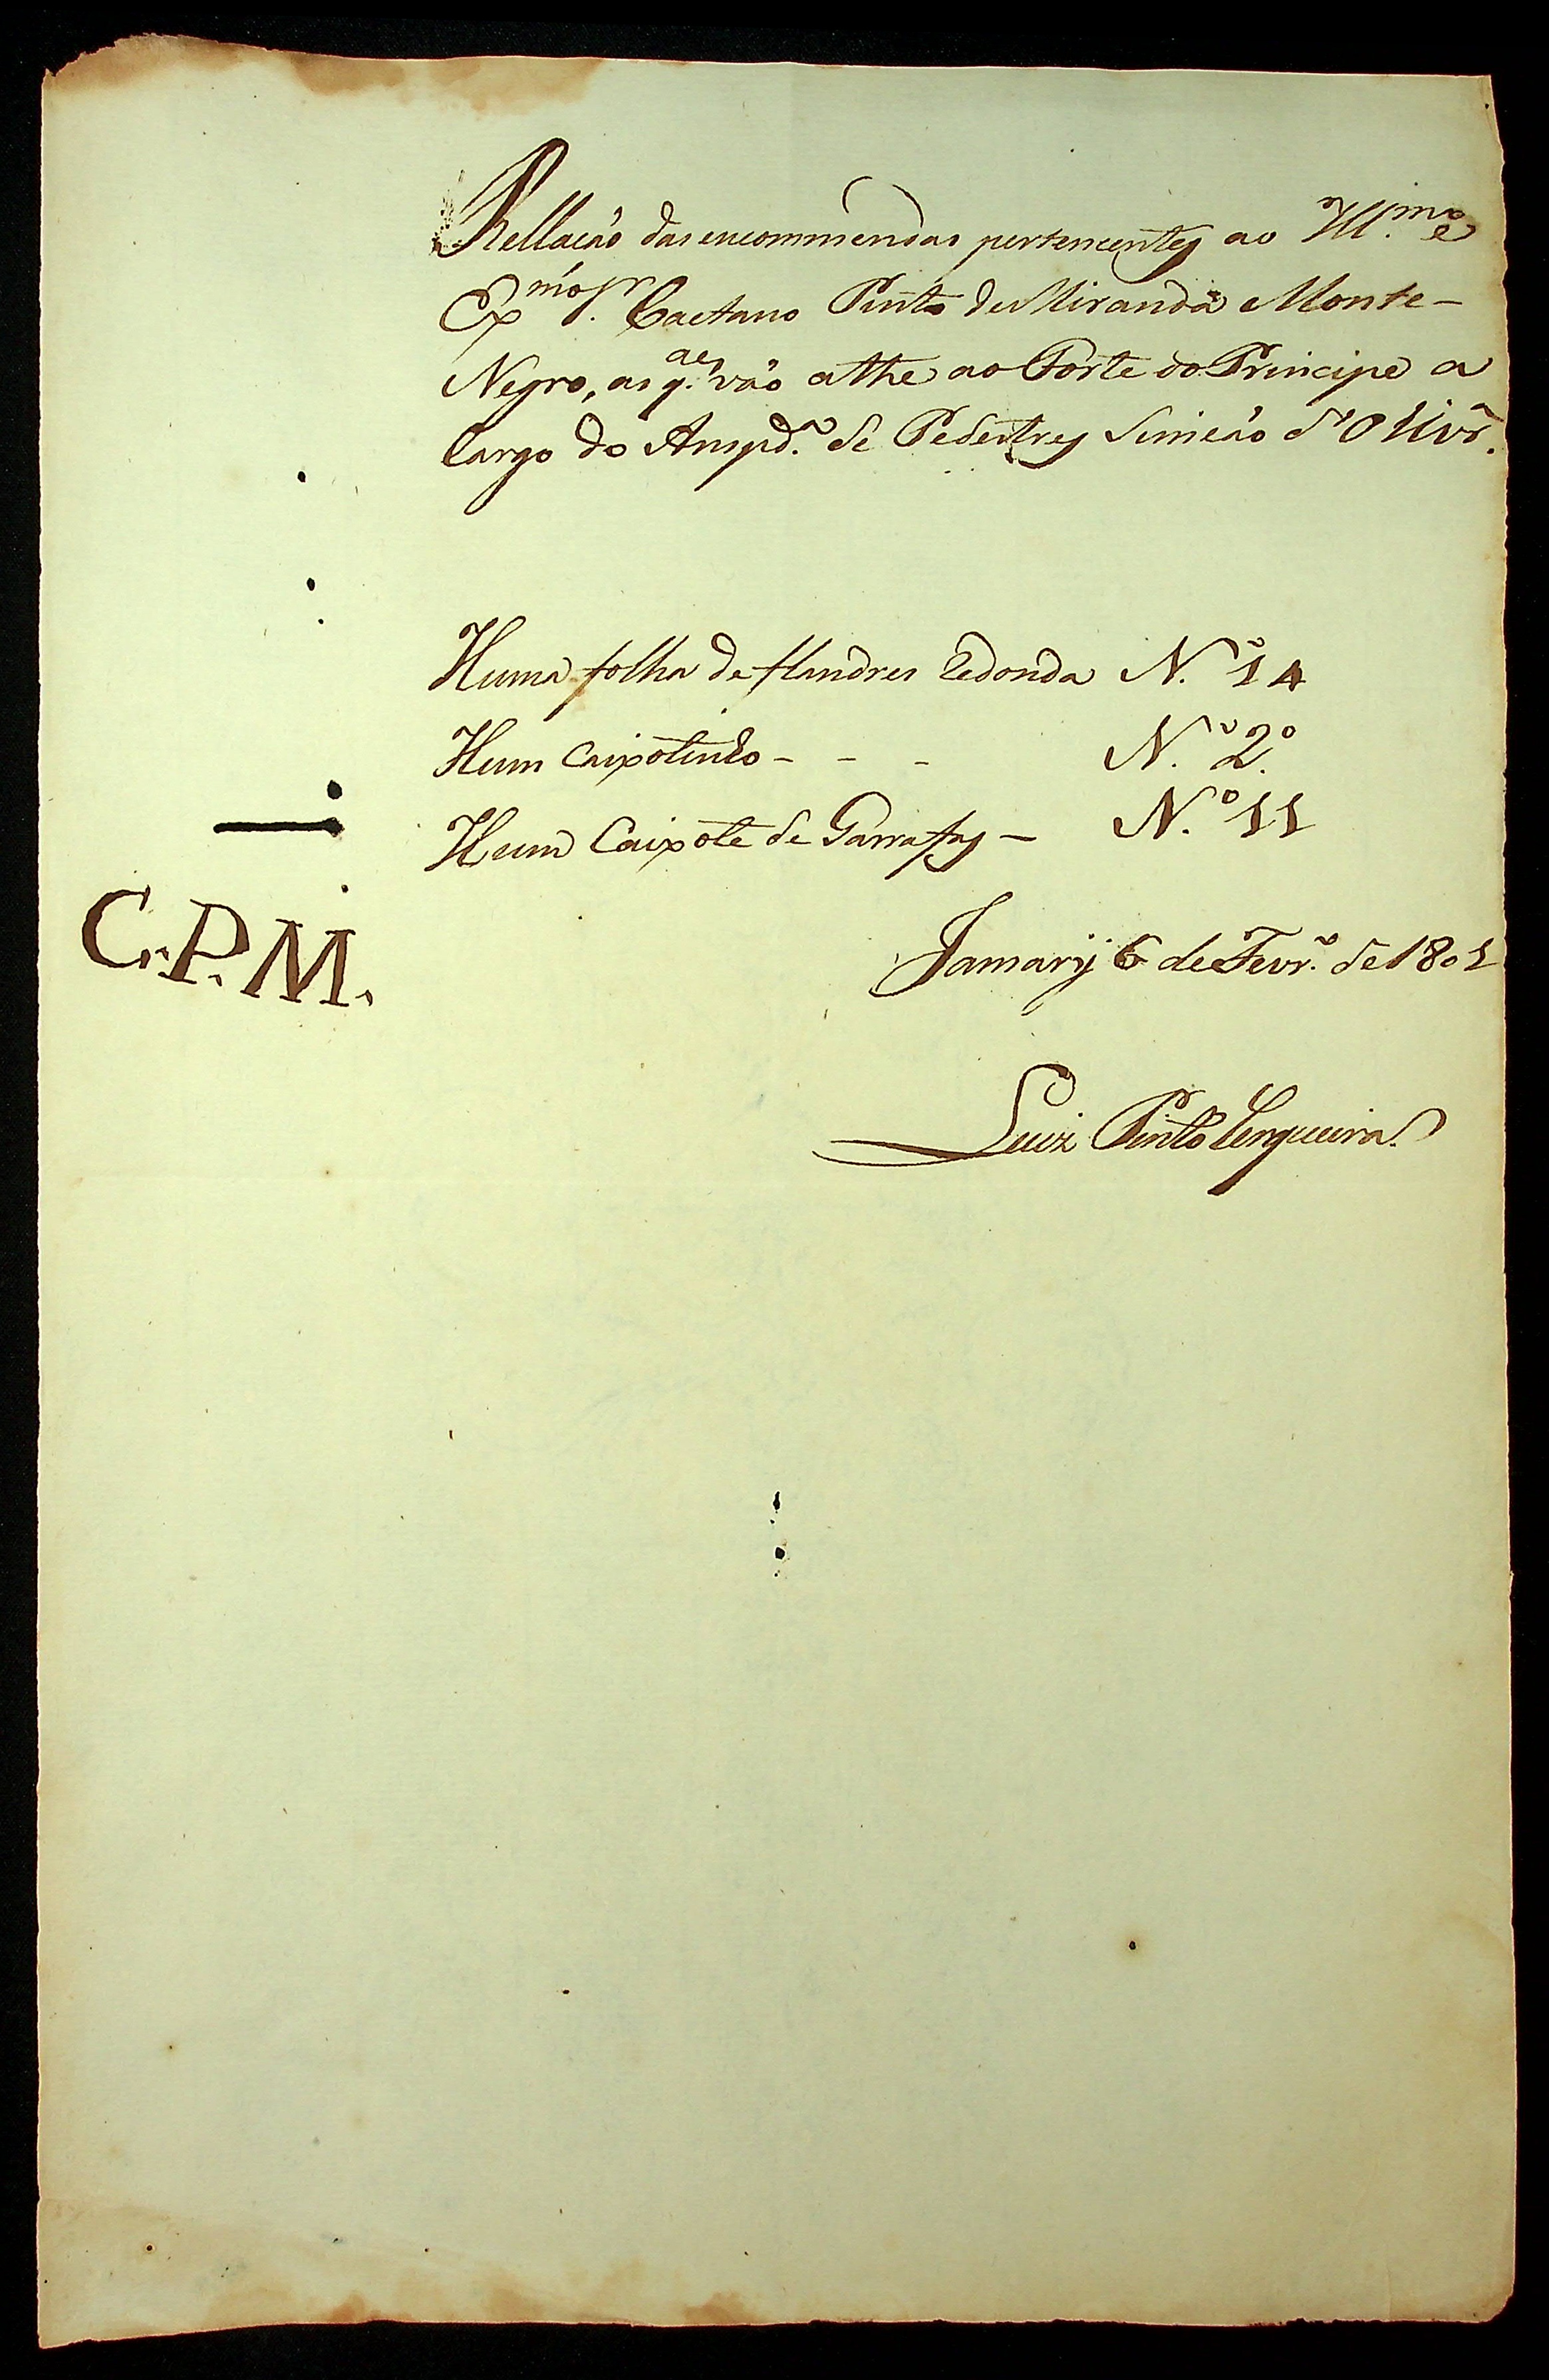 Rellacão das encommendas pertencentes ao Ill.mo e
Ex.mo Sr. Caetano Pinto de Miranda Monte-
Negro, as q.aes vão athe ao Forte do Principe a
Cargo do Anspd.a de Pedestres Simeão d'Olivr.a
Huma folha de flandres Redonda N.º 14
Hum Caixotinho - - - N.º 2.º
Hum Caixote de Garrafas - N.º 11
C.P.M.
Jamarÿ 6 de Fevr.º de 1801
Luiz Pinto Cerqueira.